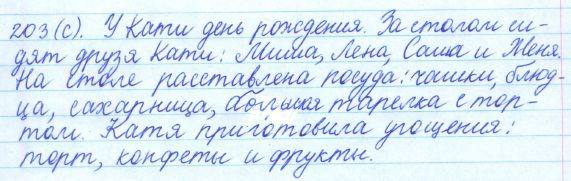 203 (с). У Кати день рождения. За столом си-
дят друзя Кати: Миша, Лена, Саша и Женя.
На столе расставлена посуда: чашки, блюд-
ца, сахарница, большая тарелка с тор-
том. Катя приготовила угощения:
торт, конфеты и фрукты.